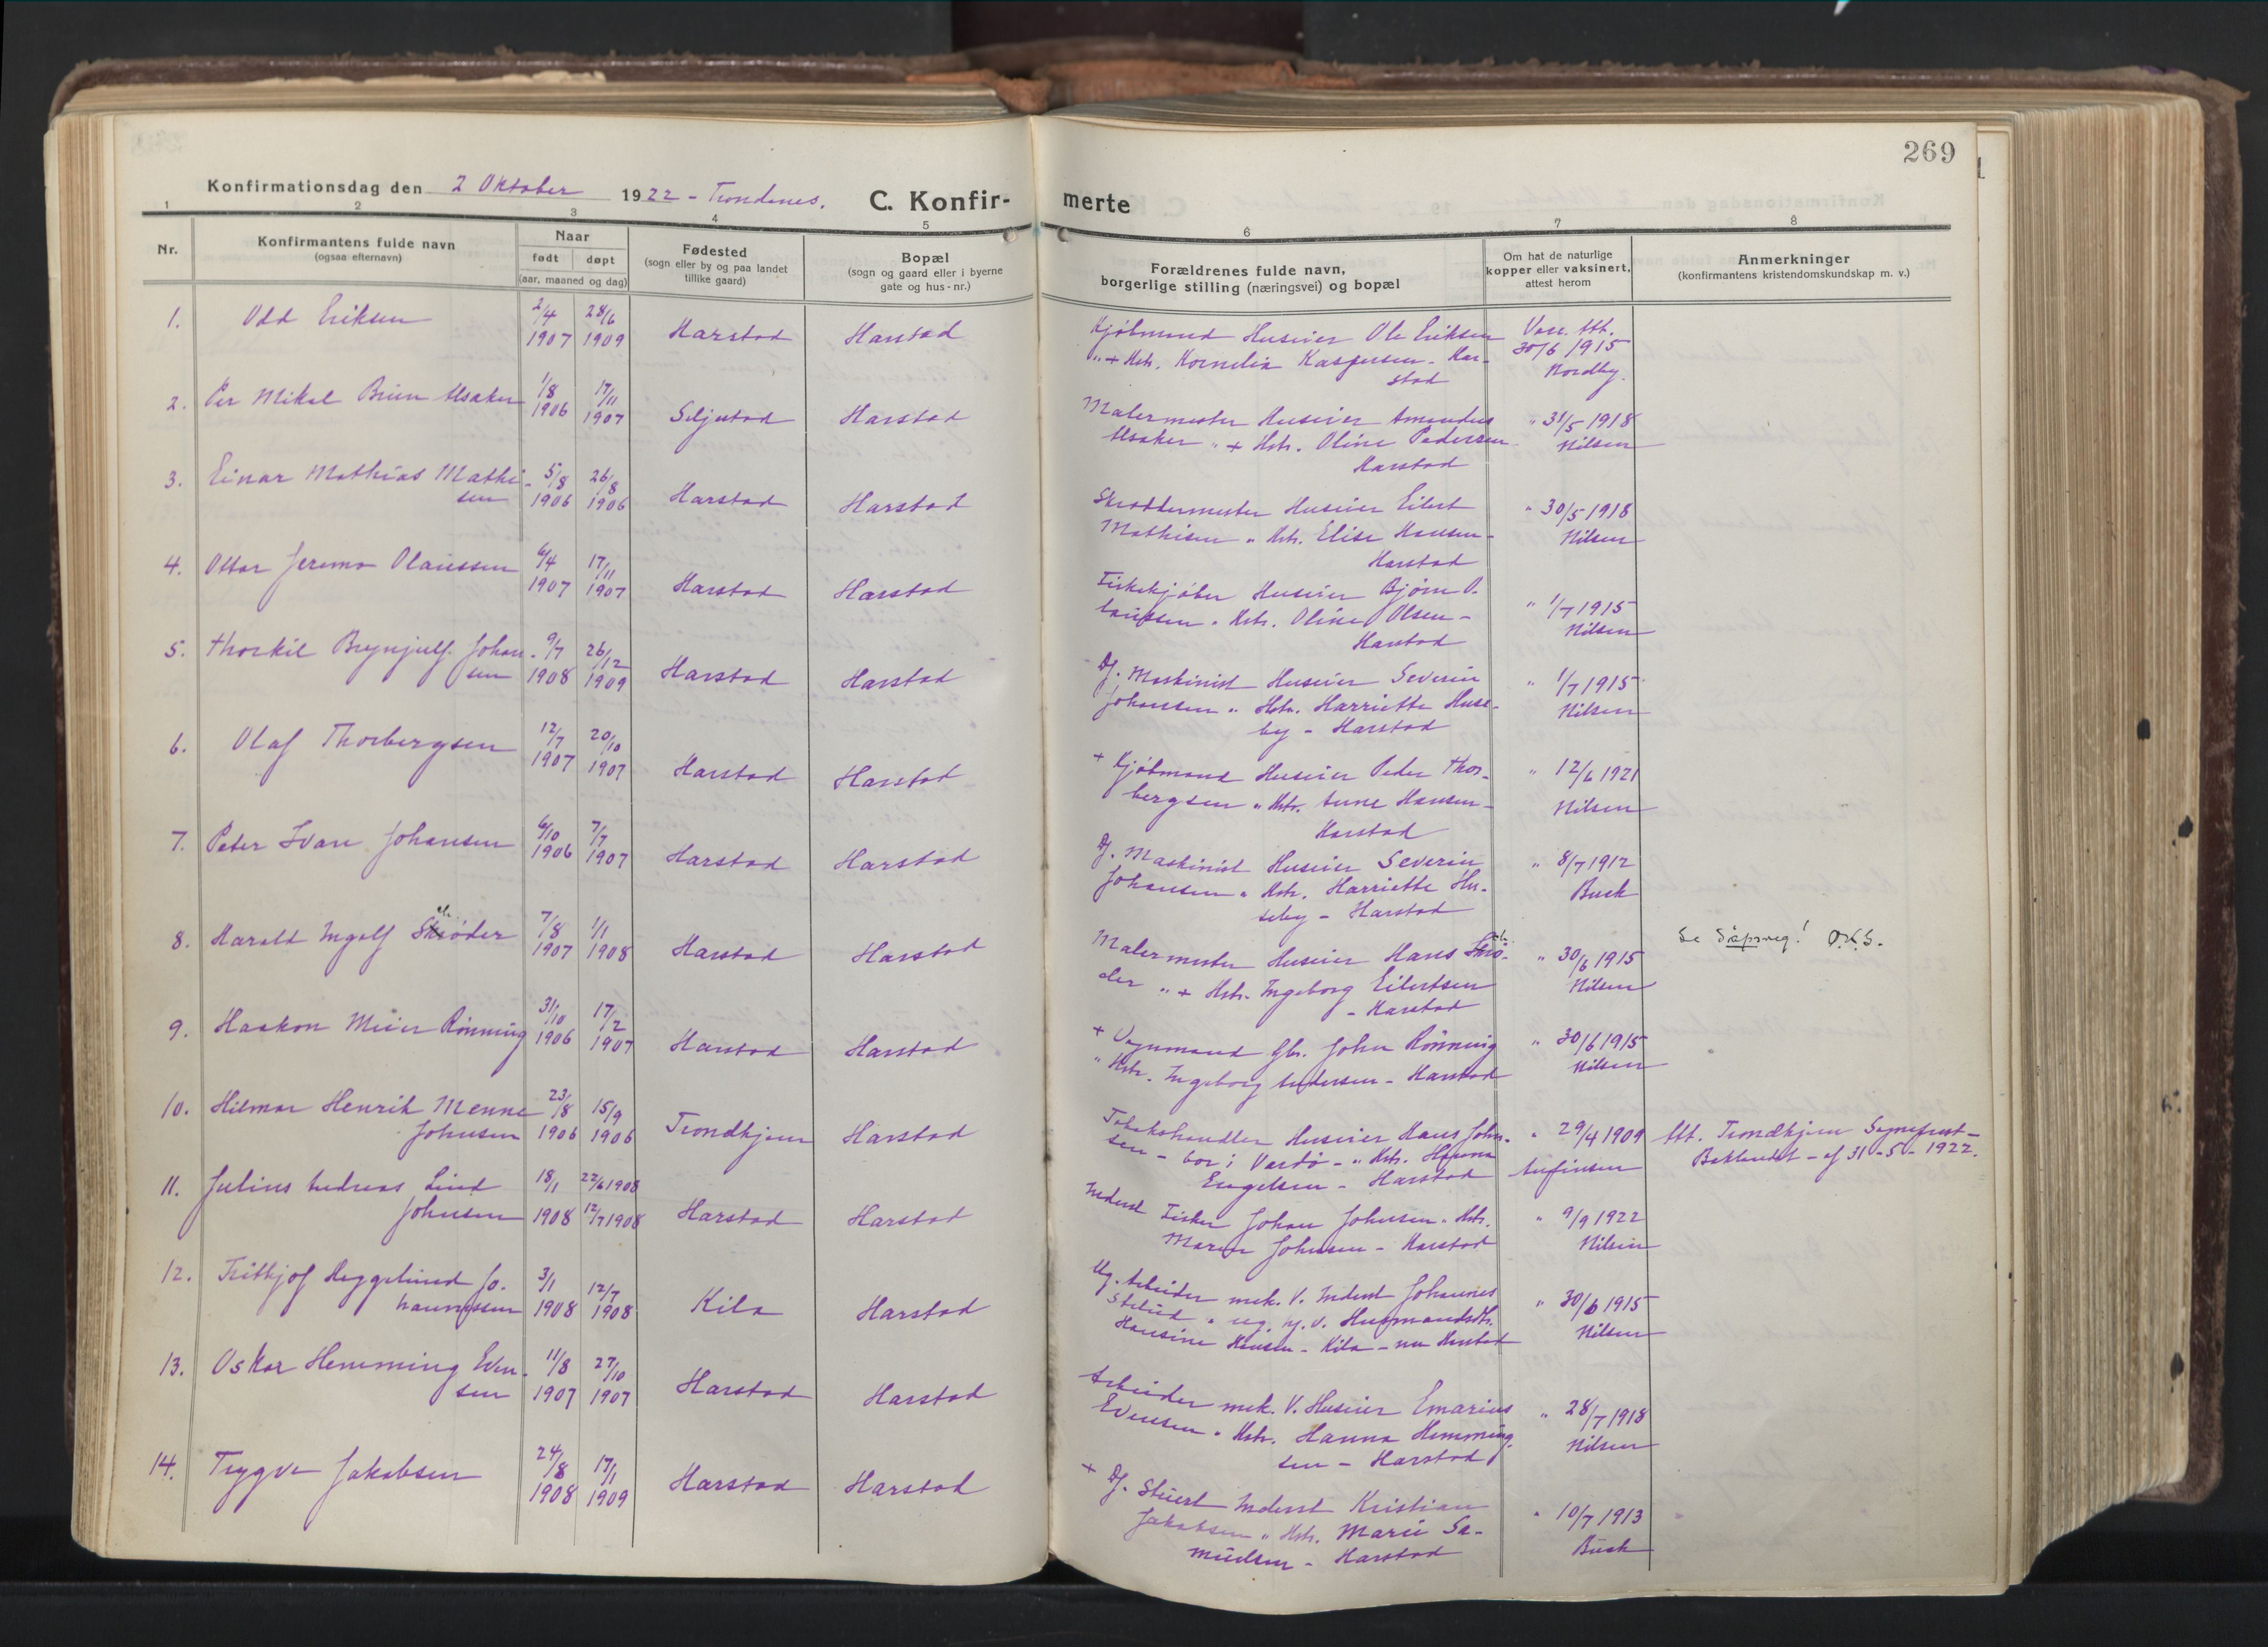 269
Konfirmationsdag den 2 Oktober 1922 - Trondenes. C. Konfir- merte
1 2 3 4 5 6 7 8
Nr.
Konfirmantens fulde navn
(ogsaa efternavn)
Naar
født døpt
(aar, maaned og dag)
Fødested
(sogn eller by og paa landet
tillike gaard)
Bopæl
(sogn og gaard eller i byerne
gate og hus-nr.)
Forældrenes fulde navn,
borgerlige stilling (næringsvei) og bopæl
Om hat de naturlige
kopper eller vaksinert,
attest herom
Anmerkninger
(konfirmantens kristendomskundskap m. v.)
1. Odd Eriksen 2/4 1907 28/6 1909 Harstad Harstad
Kjøbmand Huseier Ole Eriksen
" + Hstr. Kornelia Kaspersen - Har-
stad
Vacc. Att.
30/6 1915
Nordby.
2. Per Mikal Bruun Aasaker 1/8 1906 17/11 1907 Seljestad Harstad
Malermester Huseier Amandus
Aasaker " + Hstr. Oline Pedersen
Harstad
" 31/5 1918
Nilsen
3. Einar Mathias Mathi-
sen 5/8 1906 26/8 1906 Harstad Harstad
Skreddermester Huseier Eilert
Mathisen " Hstr. Elise Hansen -
Harstad
" 30/5 1918
Nilsen
4. Ottar Jeremo Olaussen 6/4 1907 17/11 1907 Harstad Harstad
Fiskekjøber Huseier Bjørn O-
laussen " Hstr. Oline Olsen -
Harstad
" 1/7 1915
Nilsen
5. Thorkil Brynjulf Johan-
sen 9/7 1908 26/12 1909 Harstad Harstad
Df. Maskinist Huseier Severin
Johansen " Hstr. Harriette Huse-
by - Harstad
" 1/7 1915
Nilsen
6. Olaf Thorbergsen 12/7 1907 20/10 1907 Harstad Harstad
+ Kjøbmand Huseier Peder Thor-
bergsen " Hstr. Anne Hansen -
Harstad
" 12/6 1921
Nilsen
7. Peter Ivar Johansen 6/10 1906 7/7 1907 Harstad Harstad
Df. Maskinist Huseier Severin
Johansen " Hstr. Harriette Hu-
seby - Harstad
" 8/7 1912
Buck
8. Harald Ingolf Skrøder 7/8 1907 1/1 1908 Harstad Harstad
Malermester Huseier Hans Skrø-
der " + Hstr. Ingeborg Eilertsen
- Harstad
" 30/6 1915
Nilsen
Se dåpsreg! O.K.S.
9. Haakon Meier Rønning 31/10 1906 17/2 1907 Harstad Harstad
+ Vognmand Gbr. John Rønning
" Hstr. Ingeborg Andersen - Harstad
" 30/6 1915
Nilsen
10. Hilmar Henrik Menne
Johnsen 23/8 1906 15/9 1906 Trondhjem Harstad
Tobakshandler Huseier Hans John-
sen - bor i Vardø - " Hstr.
Engelsen - Harstad
" 29/4 1909
Anfinsen
Att. Trondhjem Sogneprest -
Baklandet - af 31-5-1922.
11. Julius Andreas Lind
Johnsen 18/1 1908 22/6 1908 12/7 1908 Harstad Harstad
Inderst Fisker Johan Johnsen " Hstr.
Maren Johnsen - Harstad
" 9/9 1922
Nilsen
12. Frithjof Heggelund Jo-
hannessen 3/1 1908 12/7 1908 Kila Harstad
Ug. Arbeider mek. V. Inderst Johannes
" ug. Husmandsdtr.
Hansine Hansen - Kila - nu Harstad
" 30/6 1915
Nilsen
13. Oskar Hemming Even-
sen 11/8 1907 27/10 1907 Harstad Harstad
Arbeider mek. V. Huseier Emarius
Evensen " Hstr. Hanna Hemming-
sen - Harstad
" 28/7 1918
Nilsen
14. Trygve Jakobsen 24/8 1908 17/1 1909 Harstad Harstad
+ Df. Stuert Inderst Kristian
Jakobsen " Hstr. Marie Sa-
muelsen - Harstad
" 10/7 1913
Buck